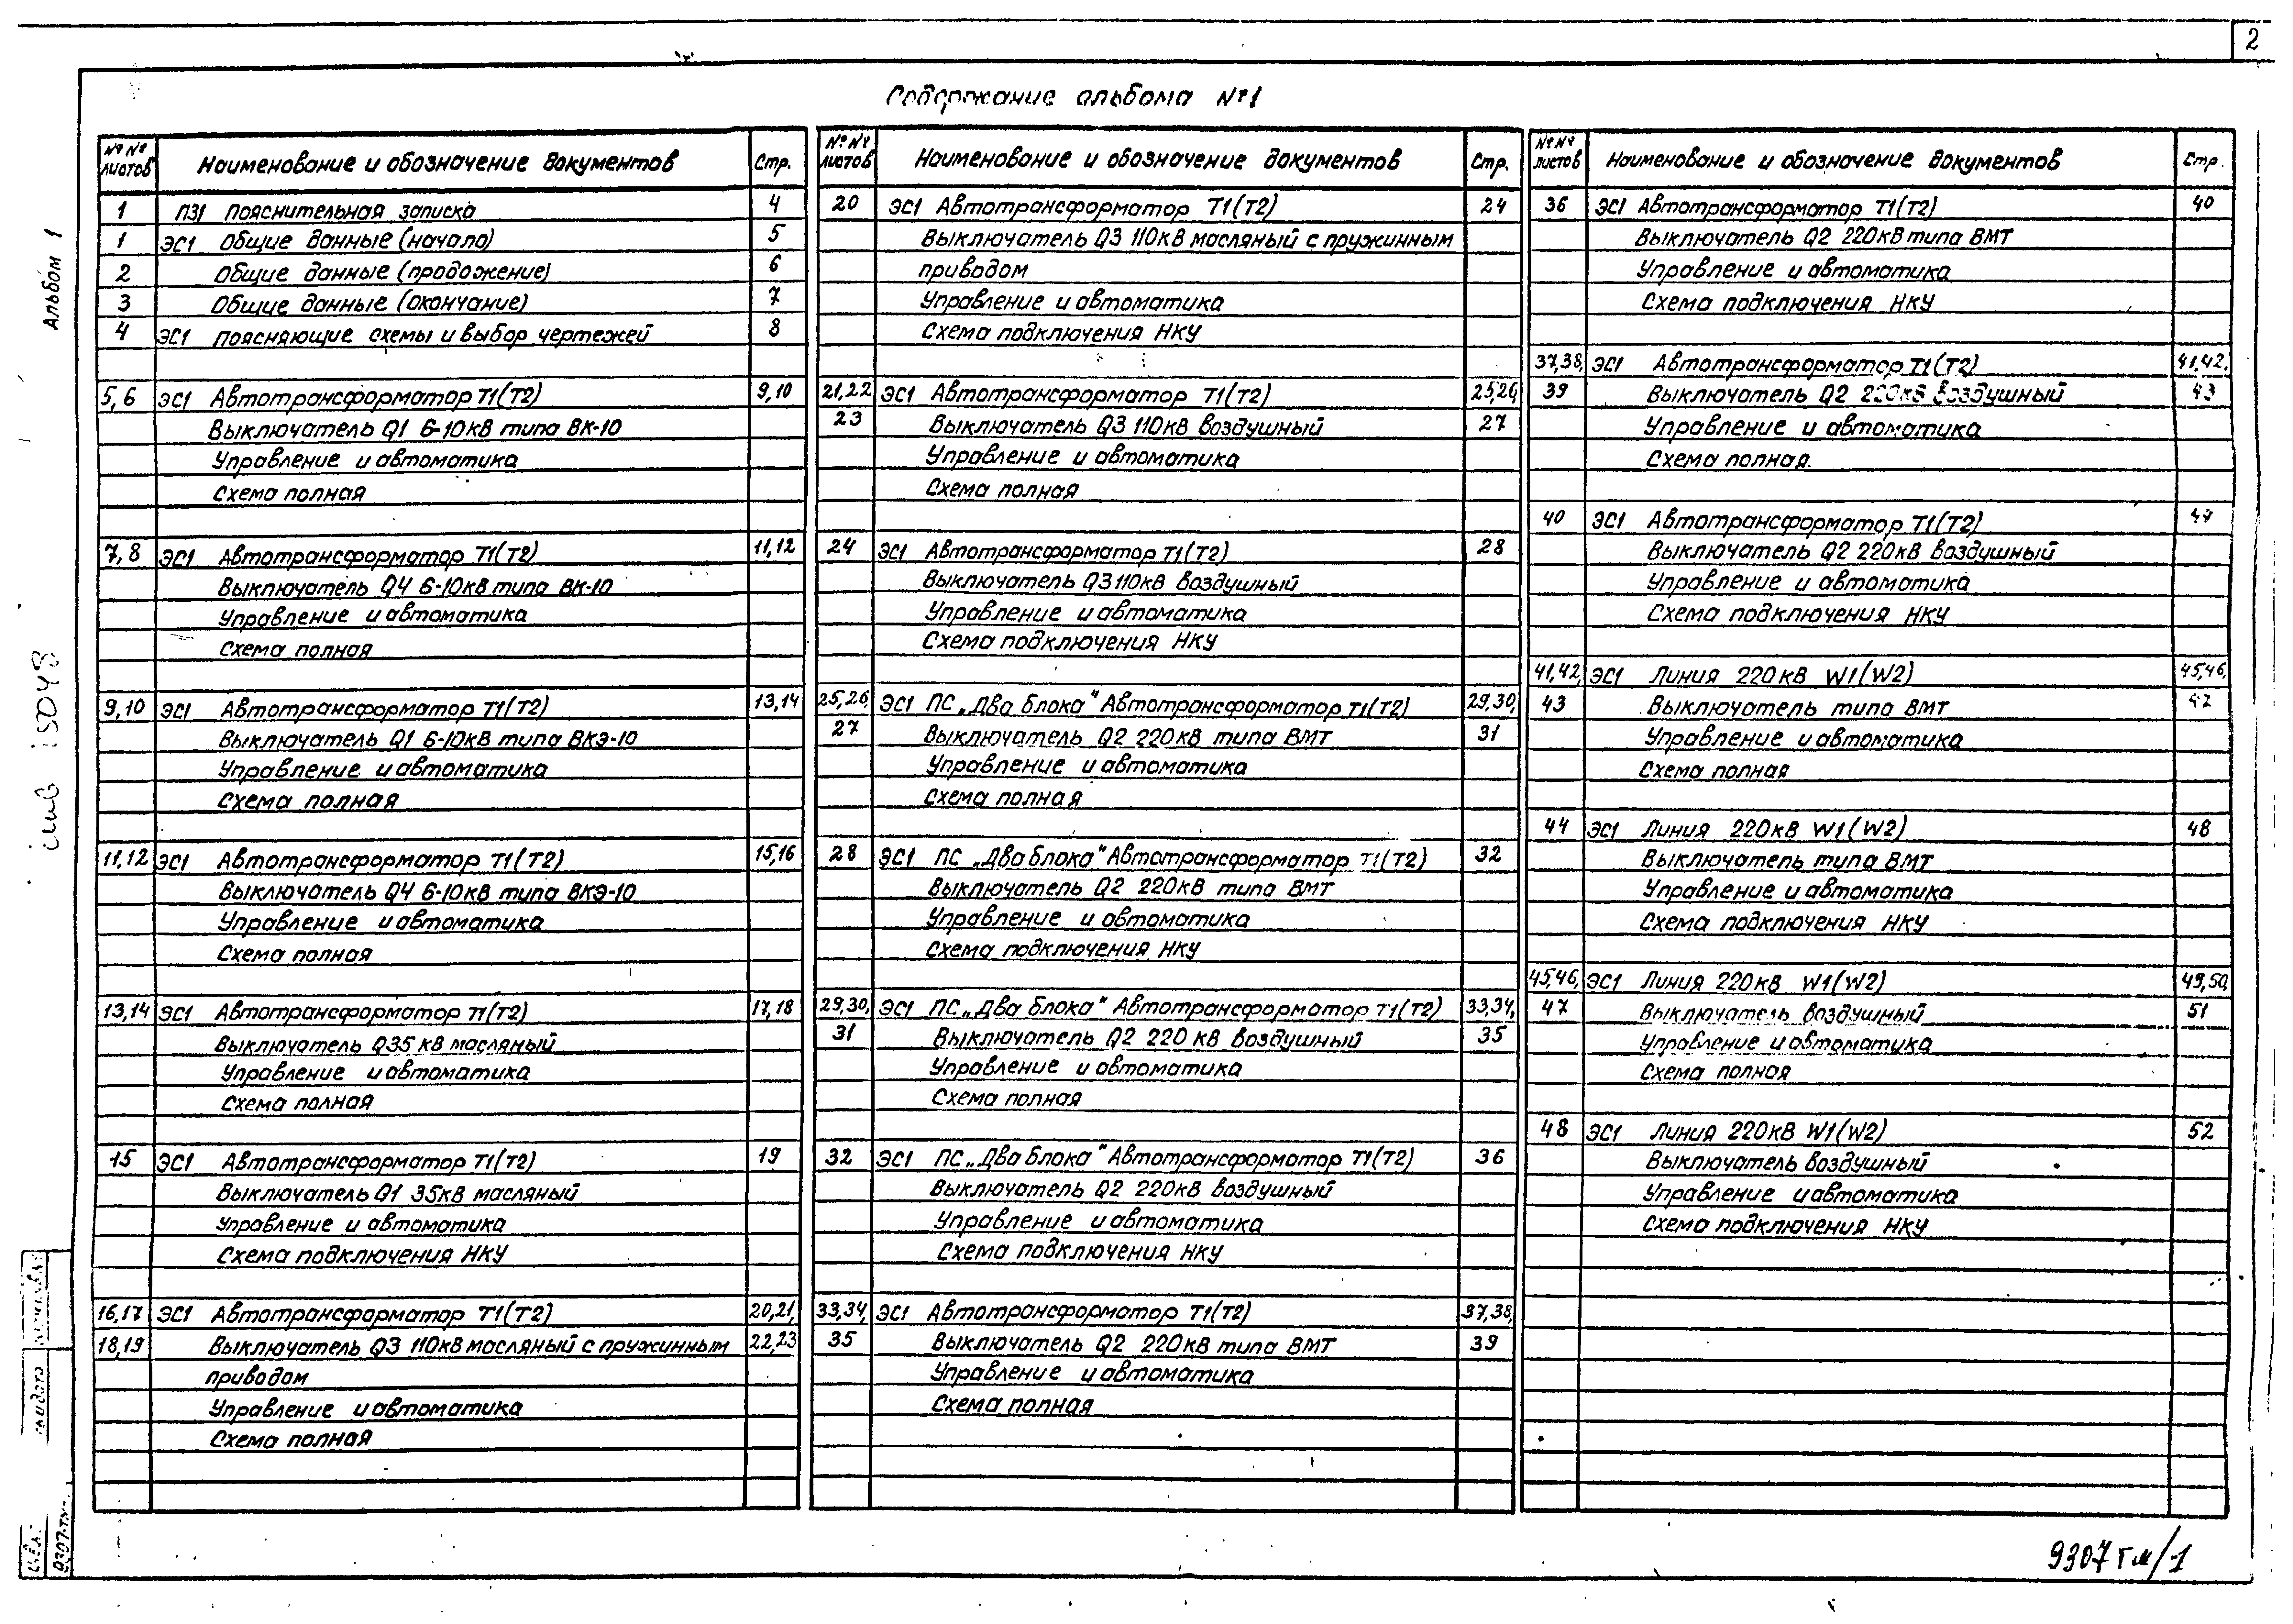 2
Содержание альбома №1
Альбом 1
№ №
листов
Наименование и обозначение документов
Стр.
1 ПЗ1 Пояснительная записка 4
1 ЭС1 Общие данные (начало) 5
2 Общие данные (продожение) 6
3 Общие данные (окончание) 7
4 ЭС1 Поясняющие схемы и выбор чертежей 8
5,6 ЭС1 Автотрансформатор Т1(Т2) 9,10
Выключатель Q1 6-10кВ типа ВК-10
Управление и автоматика
Схема полная
7,8 ЭС1 Автотрансформатор Т1(Т2) 11,12
Выключатель Q4 6-10кВ типа ВК-10
Управление и автоматика
Схема полная
9,10 ЭС1 Автотрансформатор Т1(Т2) 13,14
Выключатель Q1 6-10кВ типа ВКЭ-10
Управление и автоматика
Схема полная
11,12 ЭС1 Автотрансформатор Т1(Т2) 15,16
Выключатель Q4 6-10кВ типа ВКЭ-10
Управление и автоматика
Схема полная
13,14 ЭС1 Автотрансформатор Т1(Т2) 17,18
Выключатель Q35 кВ масляный
Управление и автоматика
Схема полная
15 ЭС1 Автотрансформатор Т1(Т2) 19
Выключатель Q1 35кВ масляный
Управление и автоматика
Схема подключения НКУ
16,17 ЭС1 Автотрансформатор Т1(Т2) 20,21,
18,19 Выключатель Q3 110кВ масляный с пружинным 22,23
приводом
Управление и автоматика
Схема полная
№ №
листов
Наименование и обозначение документов
Стр.
20 ЭС1 Автотрансформатор Т1(Т2) 24
Выключатель Q3 110кВ масляный с пружинным
приводом
Управление и автоматика
Схема подключения НКУ
21,22 ЭС1 Автотрансформатор Т1(Т2) 25,26,
23 Выключатель Q3 110кВ воздушный 27
Управление и автоматика
Схема полная
24 ЭС1 Автотрансформатор Т1(Т2) 28
Выключатель Q3 110кВ воздушный
Управление и автоматика
Схема подключения НКУ
25,26, ЭС1 ПС „Два блока" Автотрансформатор Т1(Т2) 29,30,
27 Выключатель Q2 220кВ типа ВМТ 31
Управление и автоматика
Схема полная
28 ЭС1 ПС „Два блока" Автотрансформатор Т1(Т2) 32
Выключатель Q2 220кВ типа ВМТ
Управление и автоматика
Схема подключения НКУ
29,30, ЭС1 ПС „Два блока" Автотрансформатор Т1(Т2) 33,34,
31 Выключатель Q2 220 кВ воздушный 35
Управление и автоматика
Схема полная
32 ЭС1 ПС „Два блока" Автотрансформатор Т1(Т2) 36
Выключатель Q2 220кВ воздушный
Управление и автоматика
Схема подключения НКУ
33,34, ЭС1 Автотрансформатор Т1(Т2) 37,38,
35 Выключатель Q2 220кВ типа ВМТ 39
Управление и автоматика
Схема полная
№ №
листов
Наименование и обозначение документов
Стр.
36 ЭС1 Автотрансформатор Т1(Т2) 40
Выключатель Q2 220кВ типа ВМТ
Управление и автоматика
Схема подключения НКУ
37,38, ЭС1 Автотрансформатор Т1(Т2) 41,42,
39 Выключатель Q2 220кВ воздушный 43
Управление и автоматика
Схема полная.
40 ЭС1 Автотрансформатор Т1(Т2) 44
Выключатель Q2 220кВ воздушный
Управление и автоматика
Схема подключения НКУ
41,42, ЭС1 Линия 220кВ W1(W2) 45,46,
43 Выключатель типа ВМТ 47
Управление и автоматика
Схема полная
44 ЭС1 Линия 220кВ W1(W2) 48
Выключатель типа ВМТ
Управление и автоматика
Схема подключения НКУ
45,46, ЭС1 Линия 220кВ W1(W2) 49,50,
47 Выключатель воздушный 51
Управление и автоматика
Схема полная
48 ЭС1 Линия 220кВ W1(W2) 52
Выключатель воздушный
Управление и автоматика
Схема подключения НКУ
9307тм/-1